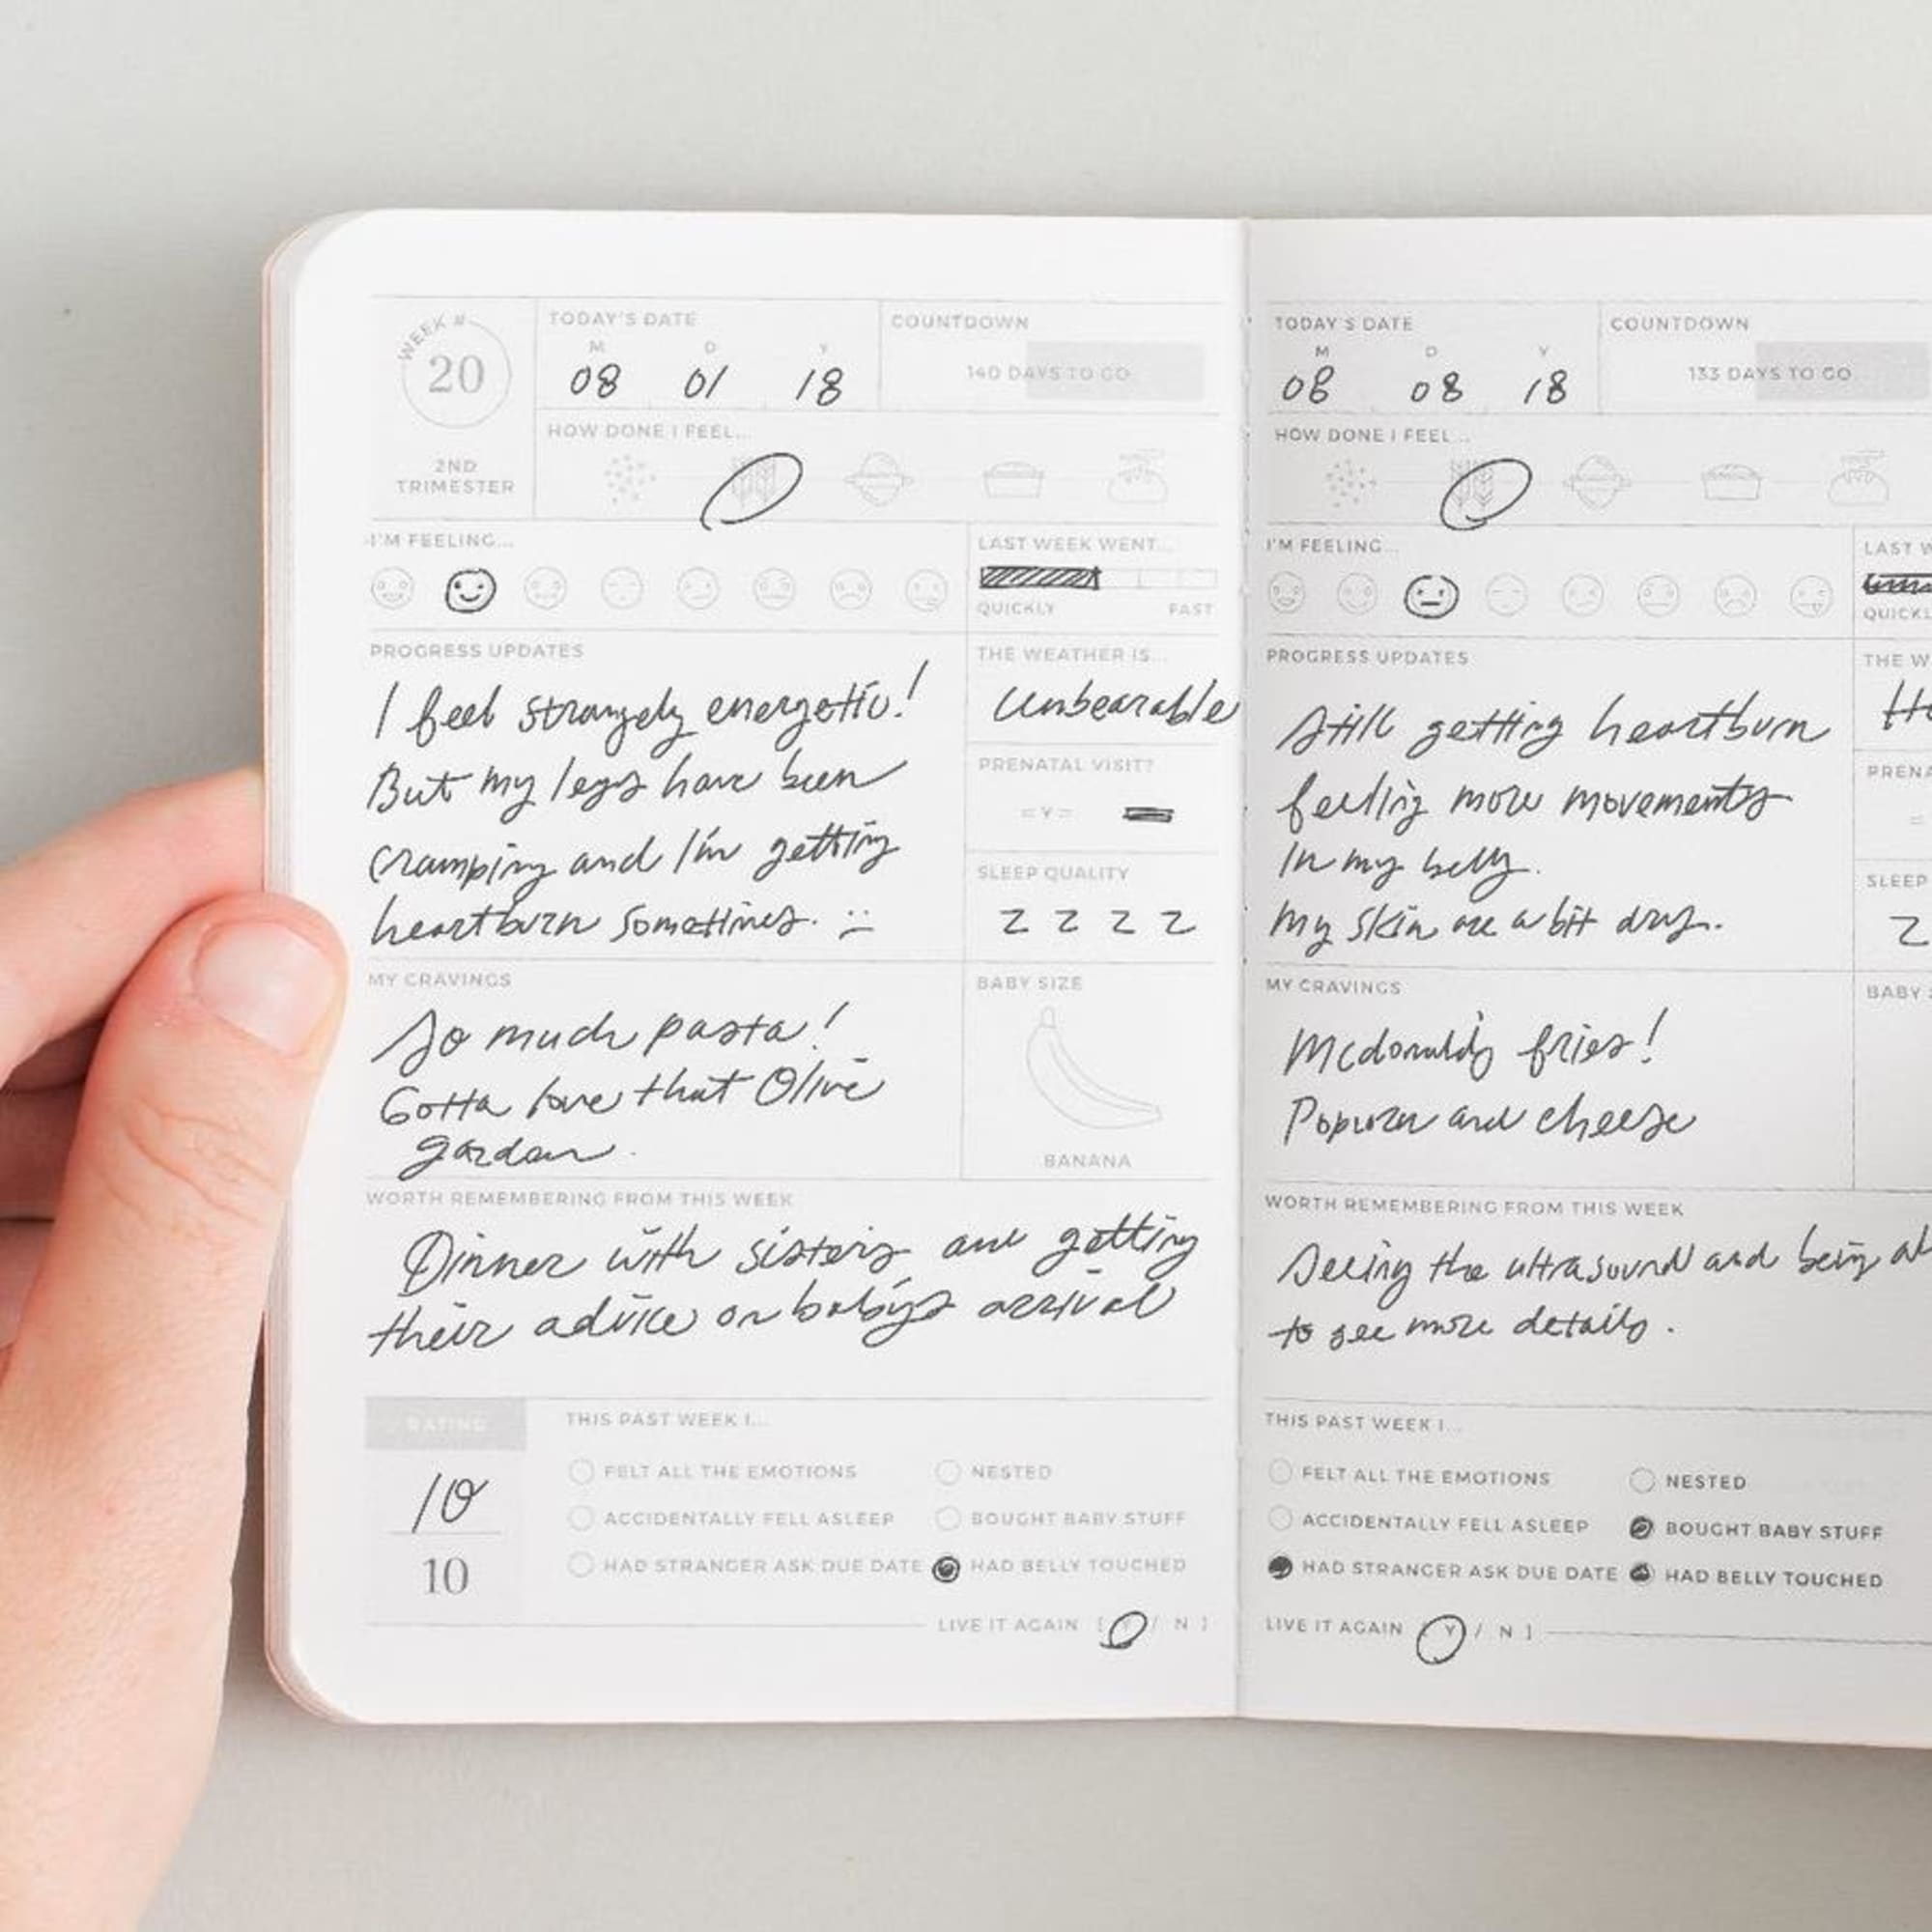 WEEK #
20
2ND
TRIMESTER
TODAY'S DATE
M D Y
08 01 18
COUNTDOWN
140 DAYS TO GO
HOW DONE I FEEL...
I'M FEELING...
LAST WEEK WENT...
QUICKLY FAST
PROGRESS UPDATES
I feel strangely energetic!
But my legs have been
cramping and I'm getting
heartburn sometimes. :(
THE WEATHER IS...
Unbearable
PRENATAL VISIT?
= Y =
SLEEP QUALITY
Z Z Z Z
MY CRAVINGS
So much pasta!
Gotta love that Olive
garden.
BABY SIZE
BANANA
WORTH REMEMBERING FROM THIS WEEK
Dinner with sisters and getting
their advice on baby's arrival
RATING
10
10
THIS PAST WEEK I...
FELT ALL THE EMOTIONS
NESTED
ACCIDENTALLY FELL ASLEEP
BOUGHT BABY STUFF
HAD STRANGER ASK DUE DATE
HAD BELLY TOUCHED
LIVE IT AGAIN [ Y / N ]
TODAY'S DATE
M D Y
08 08 18
COUNTDOWN
133 DAYS TO GO
HOW DONE I FEEL...
I'M FEELING...
LAST W
QUICKL
PROGRESS UPDATES
Still getting heartburn
feeling more movements
in my belly.
my skin are a bit dry.
THE W
PRENA
SLEEP
Z
MY CRAVINGS
Mcdonald's fries!
Popcorn and cheese
BABY
WORTH REMEMBERING FROM THIS WEEK
Seeing the ultrasound and being
to see more details.
THIS PAST WEEK I...
FELT ALL THE EMOTIONS
NESTED
ACCIDENTALLY FELL ASLEEP
BOUGHT BABY STUFF
HAD STRANGER ASK DUE DATE
HAD BELLY TOUCHED
LIVE IT AGAIN [ Y / N ]